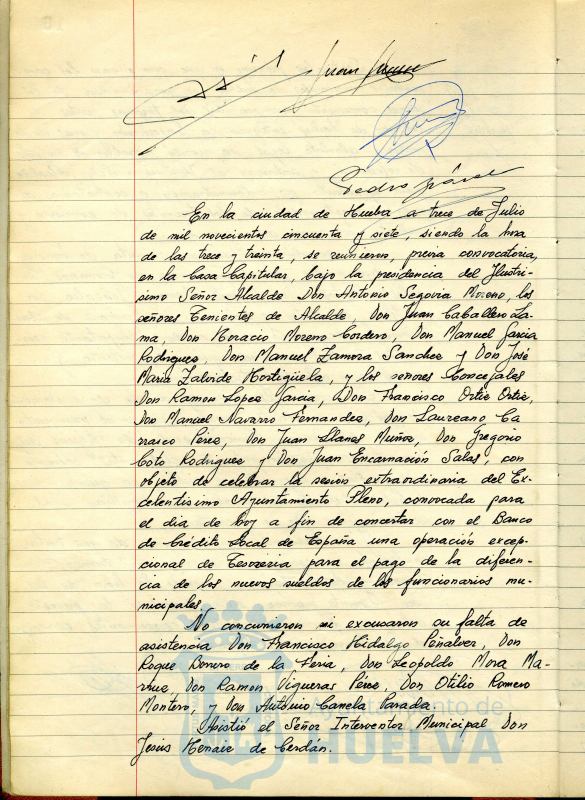 Juan
Pedro
En la ciudad de Huelva a trece de Julio
de mil novecientos cincuenta y siete, siendo la hora
de las trece y treinta, se reunieron, previa convocatoria,
en la Casa Capitular, bajo la presidencia del Ilustri-
simo Señor Alcalde Don Antonio Segovia Moreno, los
señores Tenientes de Alcalde, Don Juan Caballero La-
ma, Don Horacio Moreno Cordero, Don Manuel Garcia
Rodriguez, Don Manuel Zamora Sanchez y Don José
Maria Zalvide Hortigüela, y los señores Concejales
Don Ramon Lopez Garcia, Don Francisco Ortiz Ortiz,
Don Manuel Navarro Fernandez, Don Laureano Ca
rrasco Pérez, Don Juan Llanes Muñoz, Don Gregorio
Coto Rodriguez y Don Juan Encarnación Salas, con
objeto de celebrar la sesión extraordinaria del Ex-
celentisimo Ayuntamiento Pleno, convocada para
el dia de hoy a fin de concertar con el Banco
de Crédito Local de España una operación excep-
cional de Tesoreria para el pago de la diferen-
cia de los nuevos sueldos de los funcionarios mu-
nicipales.
No concurrieron ni excusaron su falta de
asistencia Don Francisco Hidalgo Peñalver, Don
Roque Borrero de la Feria, Don Leopoldo Mora Ma-
Don Ramon Vigueras Pérez, Don Otilio Romero
Montero, y Don Antonio Canela Parada.
Asistió el Señor Interventor Municipal Don
Jesus de Cerdán.
Ayuntamiento de
HUELVA